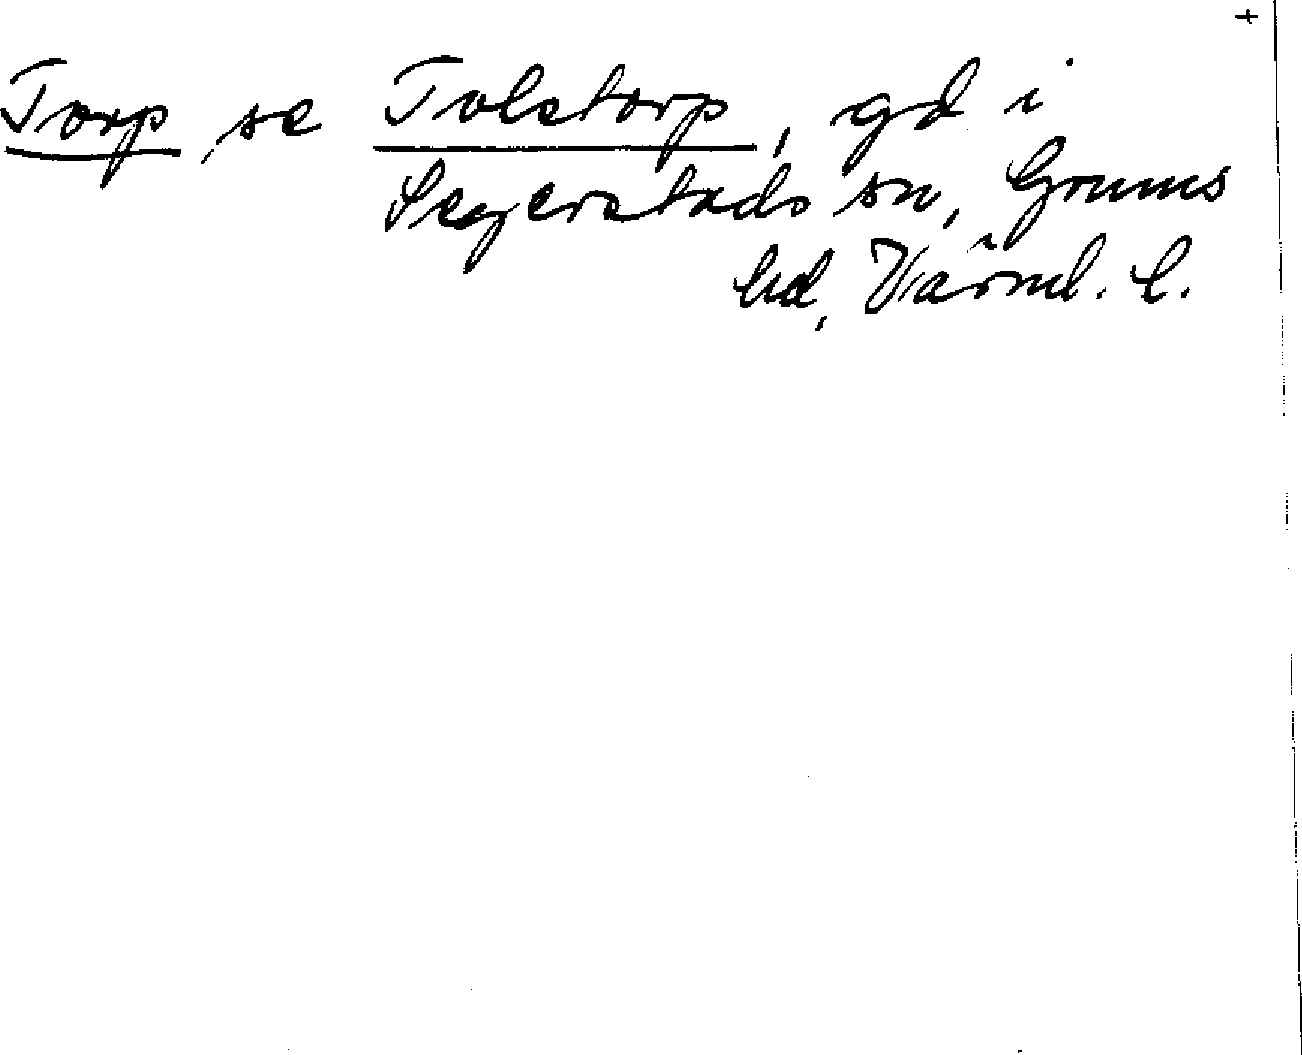 +
Torp, se Tolstorp, gd i
Segerstads sn, Grums
hd, Värml. l.